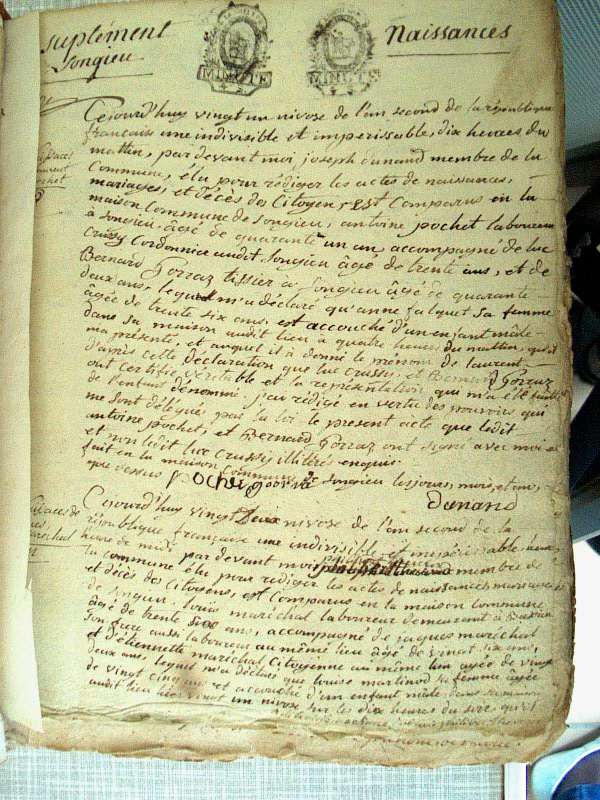 suplément
Songieu
Naissances
MINUTE
MINUTE
Cejourd'huy vingt un nivose de l'an second de la république
française une indivisible et imperissable, dix heures du
mattin, par devant moi joseph dunand membre de la
Commune, élu pour rédiger les actes de naissances,
mariages, et décès des Citoyens, Est Comparus en la
maison Commune de Songieu, antoine pochet laboureur
à Songieu, âgé de quarante un an, accompagné de luc
Crussy Cordonnier audit Songieu âgé de trente ans, et de
Bernard Gorraz tissier à Songieu âgé de quarante
deux ans, lequel m'a déclaré qu'anne falquet sa femme
âgée de trente six ans, est accouché d'un enfant mâle
dans sa maison audit lieu à quatre heures du mattin, qu'il
m'a présenté, et auquel il à donné le prénom de laurent
d'après cette déclaration que luc crussy et Bernard Gorraz
ont certifié véritable et la représentation qui m'a été faitte
de l'enfant dénommé, j'ai rédigé en vertu des pouvoirs qui
me sont délégués par la loi le présent acte que ledit
antoine pochet, et Bernard Gorraz ont signé avec moi et
et non ledit luc Crussis illitéré enquis.
fait en la maison Commune de Songieu les jours, mois, et an,
que dessus
Dunand
Cejourd'huy vingt Deux nivose de l'an second de la
république française une indivisible et imperissable,
heure de midi par devant moi membre de
la commune élu pour rediger les actes de naissances mariages
et décès des Citoyens, est Comparus en la maison Commune
de Songieu, louis maréchal laboureur demeurant à
âgé de trente six ans, accompagné de jaques maréchal
son frere aussi laboureur au même lieu âgé de vingt six ans,
et d'étiennette maréchal Citoyenne au même lieu agée de vingt
deux ans, lequel m'a déclaré que louise martinod sa femme agée
de vingt cinq ans est accouché d'un enfant mâle dans sa maison
audit lieu hier vingt un nivose sur les dix heures du soir, qu'il